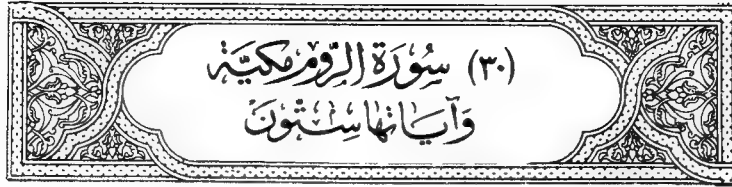 (٣٠) سُورَة الرُّومِ مَكيَّة
وَآيَاتهَا سِتُّونَ